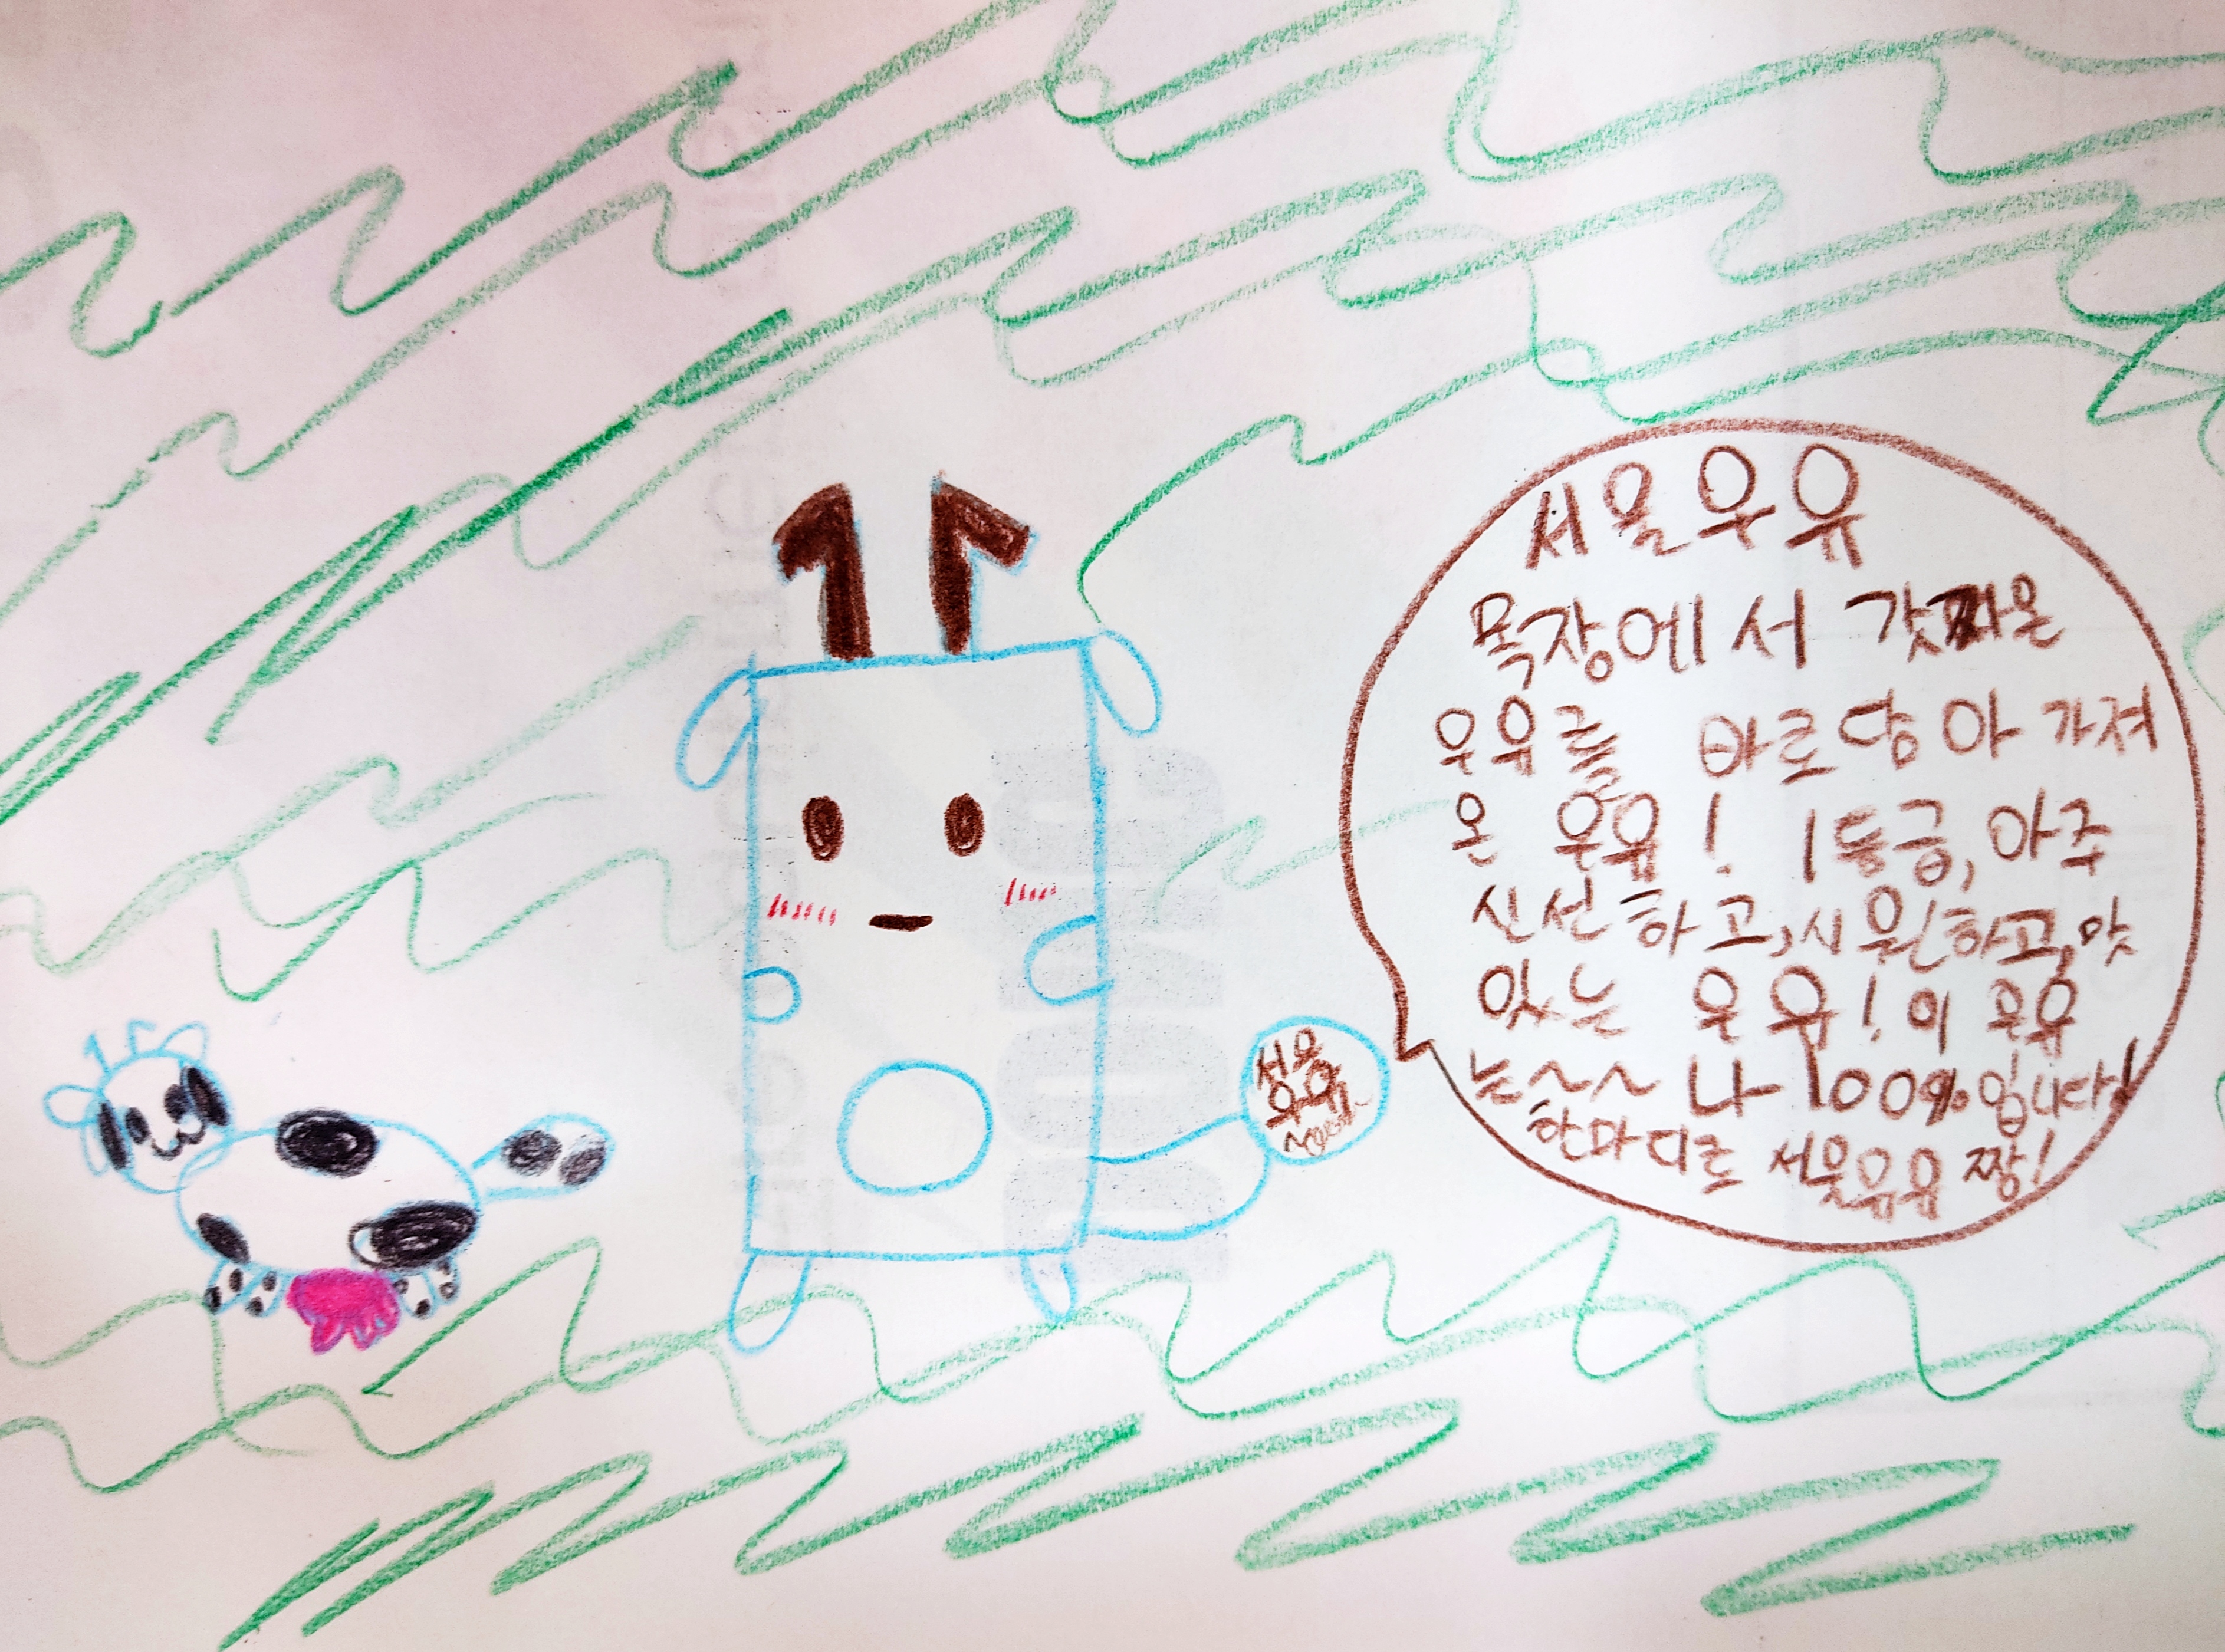 서울우유
목장에서 갓짜온
우유를 바로담아 가져
온 우유! 1등급, 아주
신선하고, 시원하고, 맛
있는 우유! 이 우유
는~~ 나 100%입니다!
한마디로 서울우유 짱!
서울
우유